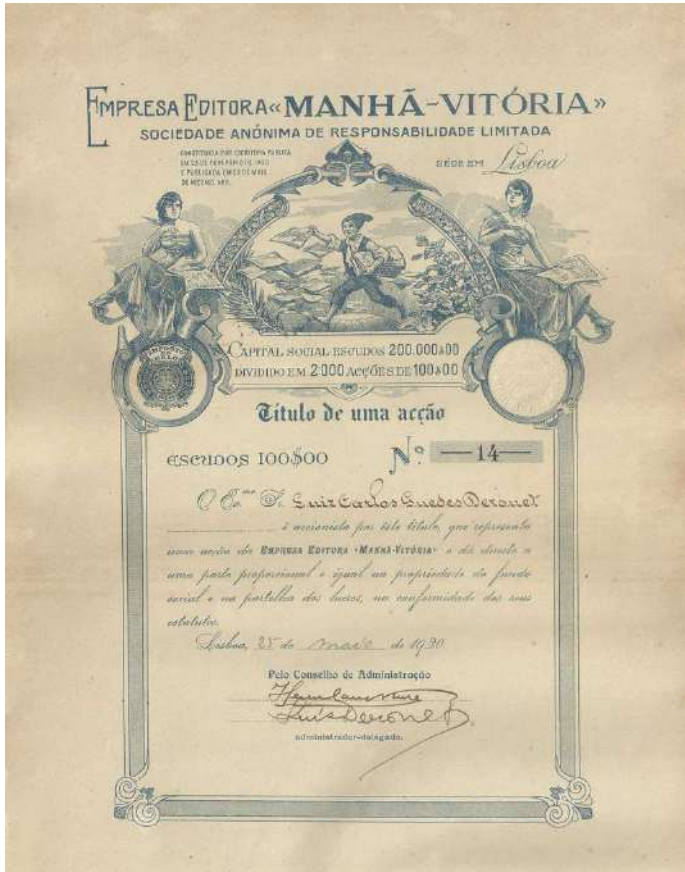 EMPRESA EDITORA «MANHÃ-VITÓRIA»
SOCIEDADE ANÓNIMA DE RESPONSABILIDADE LIMITADA
CONSTITUIDA POR ESCRITURA PUBLICA
E PUBLICADA EM
SÉDE EM Lisboa
IMPOSTO DO SELO
CAPITAL SOCIAL ESCUDOS 200.000$00
DIVIDIDO EM 2.000 ACÇÕES DE 100$00
Título de uma acção
ESCUDOS 100$00 Nº —14—
O Ex.mo Sr. Luiz Carlos Guedes Derouet
é accionista por êste título, que representa
uma acção da EMPRESA EDITORA «MANHÃ-VITÓRIA» e dá direito a
uma parte proporcional e igual na propriedade do fundo
social e na partilha dos lucros, na conformidade dos seus
estatutos.
Lisboa, 25 de Maio de 1920
Pelo Conselho de Administração
Luís Derouet
administrador-delegado.